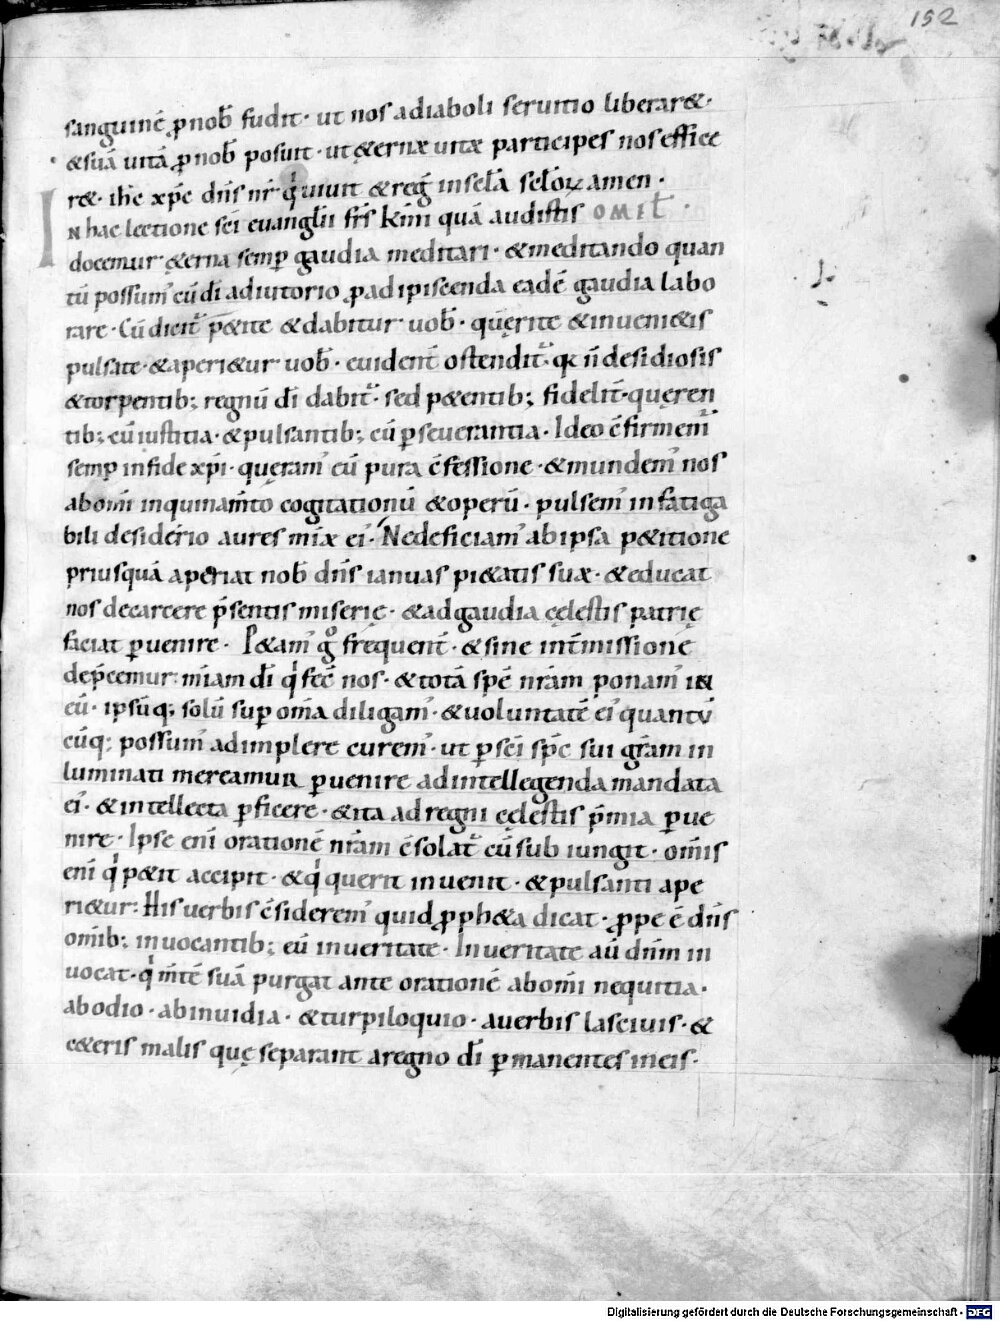 152
sanguinē ꝓ nob̄ fudit · ut nos a diaboli seruitio liberar&·
& suā uitā ꝓ nob̄ posuit · ut ę&ernæ uitæ participes nos effice
r&· ih̄c xp̄c dn̄s nr̄ qⁱ uiuit & reḡ in sc̄la sc̄loꝝ amen ·
IN hac lectione sc̄i euanḡlii fr̄s k̄mi quā audistis OMIL̄ ·
docemur ę&erna semꝑ gaudia meditari · & meditando quan
tū possum᾽ cū dī adiutorio ꝓ adipiscenda eadē gaudia labo
rare · Cū dicit᷑ p&ite & dabitur uob̄ · quęrite & inueni&is
pulsate · & aperi&ur uob̄ · euident̄ ostendit᷑ · qꝛ n̄ desidiosis
& torpentib; regnū dī dabit᷑ · sed p&entib; fidelit̄ · quęren
tib; cū iustitia · & pulsantib; cū ꝑseuerantia · Ideo c̄firmem᷑
semꝑ in fide xp̄i · queram᾽ eū pura c̄fessione · & mundem᾽ nos
ab om̄i inquinam̄to cogitationū & operū · pulsem᾽ infatiga
bili desiderio aures mīæ ei᾽ · Ne deficiam᾽ ab ipsa p&itione
priusquā aperiat nob̄ dn̄s ianuas pi&atis suæ · & educat
nos de carcere p̄sentis miserię · & ad gaudia cęlestis patrię
faciat ꝑuenire · P&am᾽ gͦ frequent̄ · & sine int̄missionē
dep̄cemur: mīam dī qⁱ fec̄ nos · & totā spē nr̄am ponam᾽ in
eū · ipsūq; solū suꝑ om̄a diligam᾽ · & uoluntatē ei᾽ quantū
cūq; possum᾽ adimplere curem᾽ · ut ꝑ sc̄i sp̄c sui gr̄am in
luminati mereamur ꝑuenire ad intellegenda mandata
ei᾽ · & intellecta ꝑficere · & ita ad regni cęlestis p̄mia ꝑue
nire · Ipse enī orationē nr̄am c̄solat᷑ cū subiungit · om̄is
enī qⁱ p&it accipit · & qⁱ querit inuenit · & pulsanti ape
ri&ur: His uerbis c̄siderem᾽ quid ꝓph&a dicat · ꝓpe ē dn̄s
om̄ib; inuocantib; eū in ueritate · In ueritate aū dn̄m in
uocat · qⁱ m̄tē suā purgat ante orationē ab om̄i nequitia ·
ab odio · ab inuidia · & turpiloquio · a uerbis lasciuis · &
c&eris malis quę separant a regno dī ꝑmanentes in eis ·
Digitalisierung gefördert durch die Deutsche Forschungsgemeinschaft - DFG